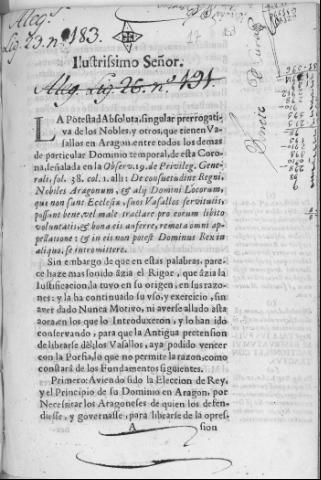 Aleg.s
Lig. 23. n.º 183.
17
Ilustrissimo Señor.
Aleg. Lig. 26. n.º 191
LA Potestad Absoluta, singular prerrogati-
va de los Nobles, y otros, que tienen Va-
sallos en Aragon, entre todos los demas
de particular Dominio temporal, de esta Coro-
na, señalada en la Observ. 19. de Privileg. Gene-
rali, fol. 38. col. 1. alli: De consuetudine Regni,
Nobiles Aragonum, & alij Domini Locorum,
qui non sunt Ecclesiæ, suos Vassallos servitutis,
possunt bene, vel male tractare pro eorum libito
voluntatis, & bona eis auferre, remota omni ap-
pellatione; & in eis non potest Dominus Rex in
aliquo, se intromittere.
Sin embargo de que en estas palabras, pare-
ce haze mas sonido àzia el Rigor, que àzia la
Iustificacion, la tuvo en su origen, en sus razo-
nes: y la ha continuado su vso, y exercicio, sin
aver dado Nunca Motivo, ni averse allado asta
aora, en los que lo Introduxeron, y lo han ido
conservando, para que la Antigua pretension
de librarse dèl, los Vasallos, aya podido vencer
con la Porfia, lo que no permite la razon, como
constará de los Fundamentos siguientes.
Primero: Aviendo sido la Eleccion de Rey,
y el Principio de su Dominio en Aragon, por
Necesitar los Aragoneses de quien los defen-
diesse, y governasse, para librarse de la opres-
A sion